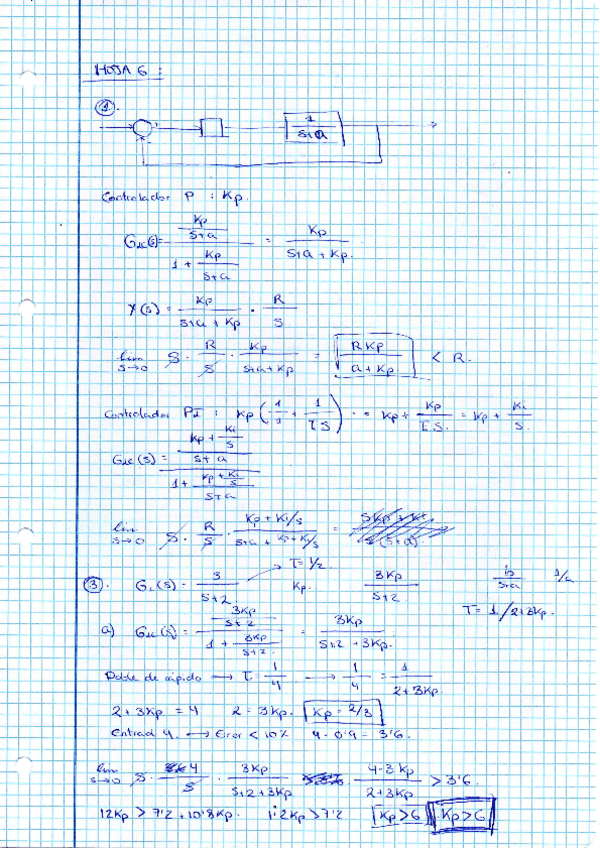 HOJA 6 :
①.
1/(s+a)
Controlador P : Kp.
G_BC(s) = (Kp/(s+a)) / (1 + Kp/(s+a)) = Kp/(s+a+Kp).
Y(s) = Kp/(s+a+Kp) · R/s
lim s→0 s · R/s · Kp/(s+a+Kp) = RKp/(a+Kp) < R.
Controlador PI : Kp(1/1 + 1/(τs)) · = Kp + Kp/(τs.) = Kp + Ki/s
G_BC(s) = ((Kp + Ki/s)/(s+a)) / (1 + (Kp + Ki/s)/(s+a))
lim s→0 s · R/s · (Kp + Ki/s)/(s+a+Kp+Ki/s) =
③. G1(s) = 3/(s+2) → τ = 1/2. Kp. 3Kp/(s+2) b/(s+a) 1/a
τ = 1/2+3Kp.
a) G_BC(s) = (3Kp/(s+2)) / (1 + 3Kp/(s+2)) = 3Kp/(s+2+3Kp).
Doble de rápido → τ = 1/4 → 1/4 = 1/(2+3Kp.)
2+3Kp = 4 2 = 3Kp. Kp = 2/3
Entrad 4. → Error < 10% 4 · 0'9 = 3'6.
lim s→0 s · 4/s · 3Kp/(s+2+3Kp) 4·3Kp/(2+3Kp) > 3'6.
12Kp > 7'2 + 10'8Kp. 1'2Kp > 7'2 Kp > 6 Kp > 6